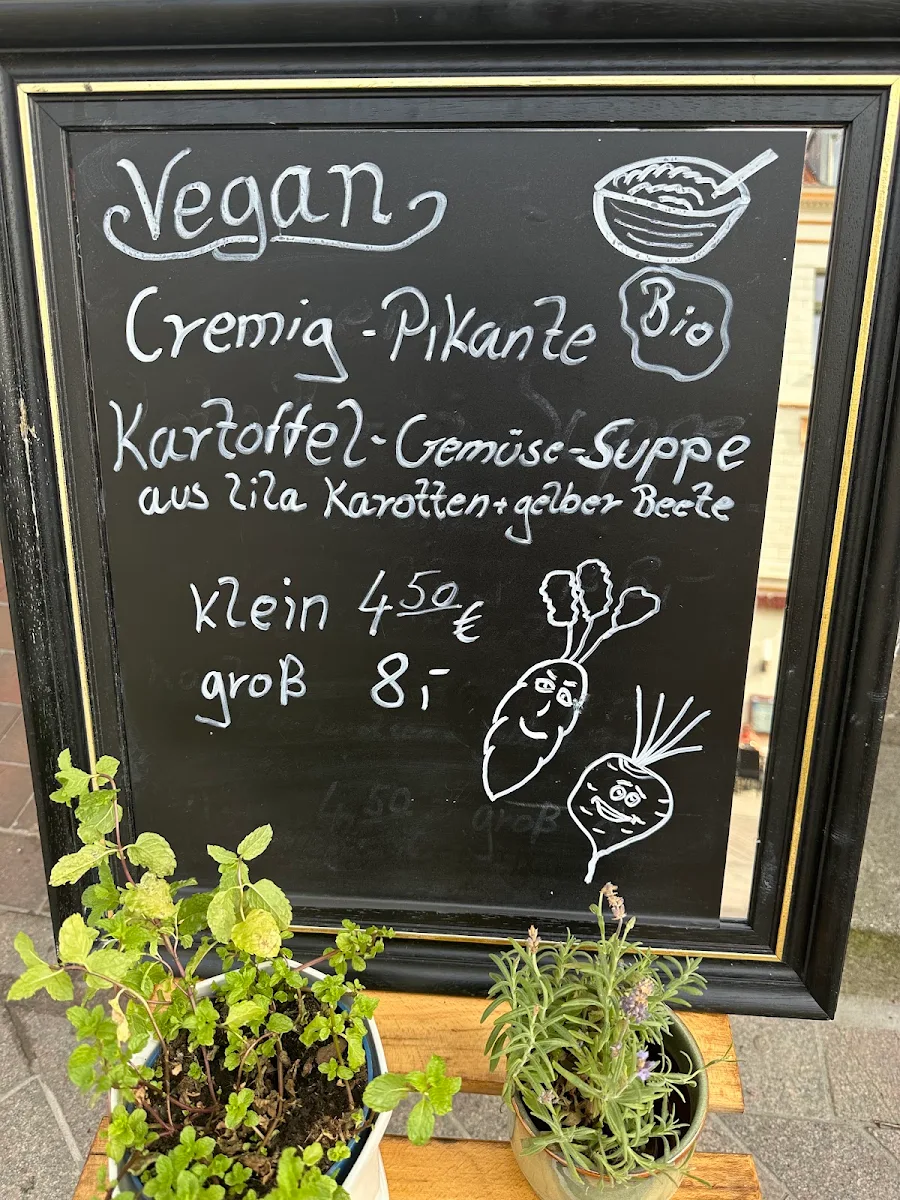 Vegan
Cremig-Pikante
Bio
Kartoffel-Gemüse-Suppe
aus lila Karotten+gelber Beete
klein 4 50 €
groß 8,-
4,50 groß